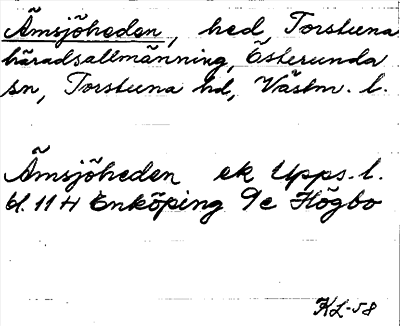 Ämsjöheden, hed, Torstuna
häradsallmänning, Österunda
sn, Torstuna hd, Västm. l.
Ämsjöheden ek Upps. l.
bl. 11 H Enköping 9e Högbo
KL-58